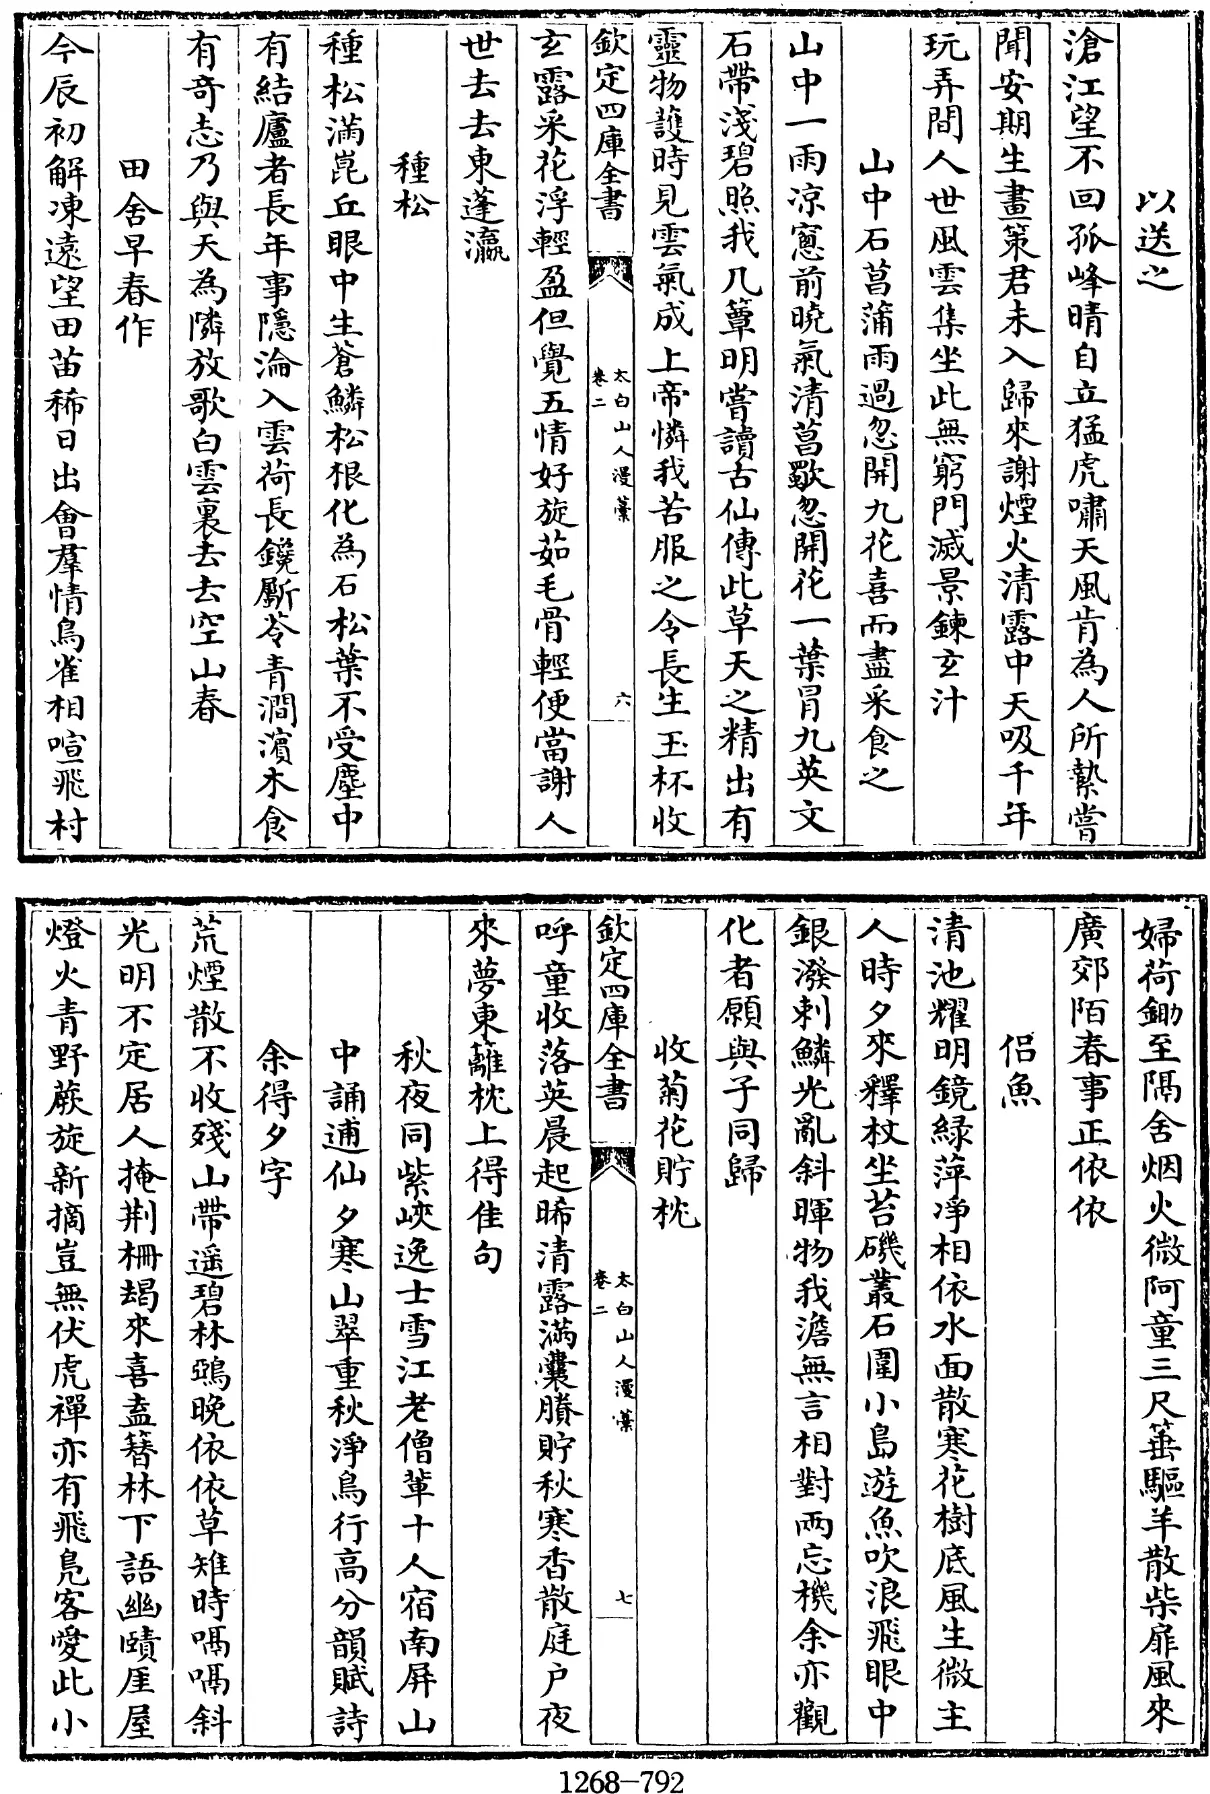 以送之
滄江望不回孤峰晴自立猛虎嘯天風肯為人所縶嘗
聞安期生畫策君未入歸來謝煙火清露中天吸千年
玩弄間人世風雲集坐此無窮門滅景鍊玄汁
山中石菖蒲雨過忽開九花喜而盡采食之
山中一雨凉窻前曉氣清菖歜忽開花一葉冐九英文
石帶淺碧照我几簟明嘗讀古仙傳此草天之精出有
靈物護時見雲氣成上帝憐我苦服之令長生玉杯收
欽定四庫全書
太白山人漫藳
卷二
六
玄露采花浮輕盈但覺五情好旋茹毛骨輕便當謝人
世去去東蓬瀛
種松
種松滿崑丘眼中生蒼鱗松根化為石松葉不受塵中
有結廬者長年事隱淪入雲荷長鑱斸苓青澗濵木食
有奇志乃與天為隣放歌白雲裏去去空山春
田舍早春作
今辰初解凍遠望田苗稀日出會羣情鳥雀相喧飛村
婦荷鋤至隔舍烟火微阿童三尺箠驅羊散柴扉風來
廣郊陌春事正依依
侶魚
清池耀明鏡緑萍凈相依水面散寒花樹底風生微主
人時夕來釋杖坐苔磯叢石圍小島遊魚吹浪飛眼中
銀潑剌鱗光亂斜暉物我澹無言相對兩忘機余亦觀
化者願與子同歸
收菊花貯枕
欽定四庫全書
太白山人漫藳
卷二
七
呼童收落英晨起晞清露滿囊賸貯秋寒香散庭户夜
來夢東籬枕上得佳句
秋夜同紫峽逸士雪江老僧輩十人宿南屏山
中誦逋仙夕寒山翠重秋淨鳥行高分韻賦詩
余得夕字
荒煙散不收殘山帶遥碧林鴉晚依依草雉時嗝嗝斜
光明不定居人掩荆柵朅來喜盍簪林下語幽賾厓屋
燈火青野蕨旋新摘豈無伏虎禪亦有飛鳬客愛此小
1268-792